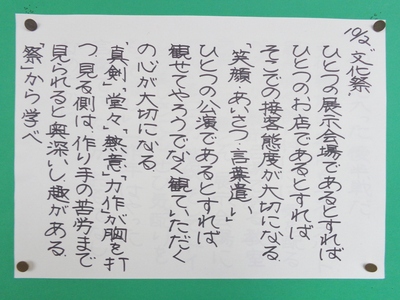 10/2 "文化祭"
ひとつの展示会場であるとすれば
ひとつのお店であるとすれば
そこでの接客態度が大切になる
「笑顔・あいさつ・言葉遣い」
ひとつの公演であるとすれば
観せてやろうでなく観ていただく
の心が大切になる
「真剣」堂々」熱意」力作」が胸を打
つ、見る側は、作り手の苦労まで
見られると奥深いし、趣がある
「祭」から学べ